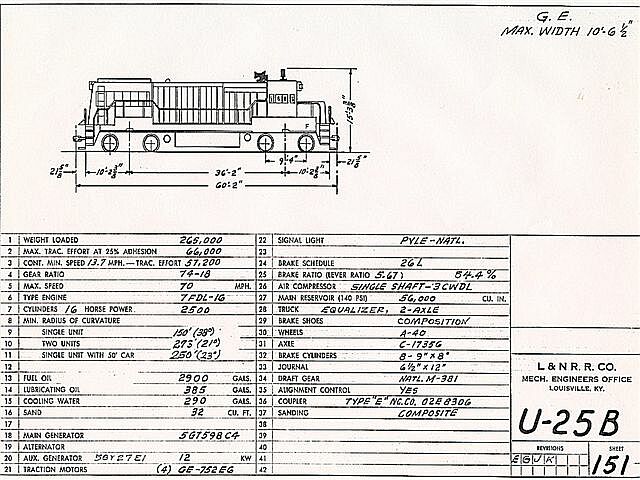 G. E.
MAX. WIDTH 10'-6 1/2"
F
15'-3 3/8"
21 5/8"
10'-2 3/8"
36'-2"
9'-4"
10'-2 3/8"
21 5/8"
60'-2"
1 WEIGHT LOADED 265,000
2 MAX. TRAC. EFFORT AT 25% ADHESION 66,000
3 CONT. MIN. SPEED 13.7 MPH.—TRAC. EFFORT 57,200
4 GEAR RATIO 74-18
5 MAX. SPEED 70 MPH.
6 TYPE ENGINE 7FDL-16
7 CYLINDERS 16 HORSE POWER 2500
8 MIN. RADIUS OF CURVATURE
9 SINGLE UNIT 150' (38°)
10 TWO UNITS 273' (21°)
11 SINGLE UNIT WITH 50' CAR 250' (23°)
12
13 FUEL OIL 2900 GALS.
14 LUBRICATING OIL 385 GALS.
15 COOLING WATER 290 GALS.
16 SAND 32 CU. FT.
17
18 MAIN GENERATOR 5GT598C4
19 ALTERNATOR
20 AUX. GENERATOR 5GY27E1 12 KW
21 TRACTION MOTORS (4) GE-752E6
22 SIGNAL LIGHT PYLE-NATL.
23
24 BRAKE SCHEDULE 26L
25 BRAKE RATIO (LEVER RATIO 5.67) 54.4%
26 AIR COMPRESSOR SINGLE SHAFT-3CWDL
27 MAIN RESERVOIR (140 PSI) 56,000 CU. IN.
28 TRUCK EQUALIZER, 2-AXLE
29 BRAKE SHOES COMPOSITION
30 WHEELS A-40
31 AXLE C-17356
32 BRAKE CYLINDERS 8-9"X8"
33 JOURNAL 6 1/2" X 12"
34 DRAFT GEAR NATL. M-381
35 ALIGNMENT CONTROL YES
36 COUPLER TYPE "E" NC.CO. 02E8306
37 SANDING COMPOSITE
38
39
40
41
42
L & N R. R. CO.
MECH. ENGINEERS OFFICE
LOUISVILLE, KY.
U-25B
REVISIONS SHEET
E G J K
151